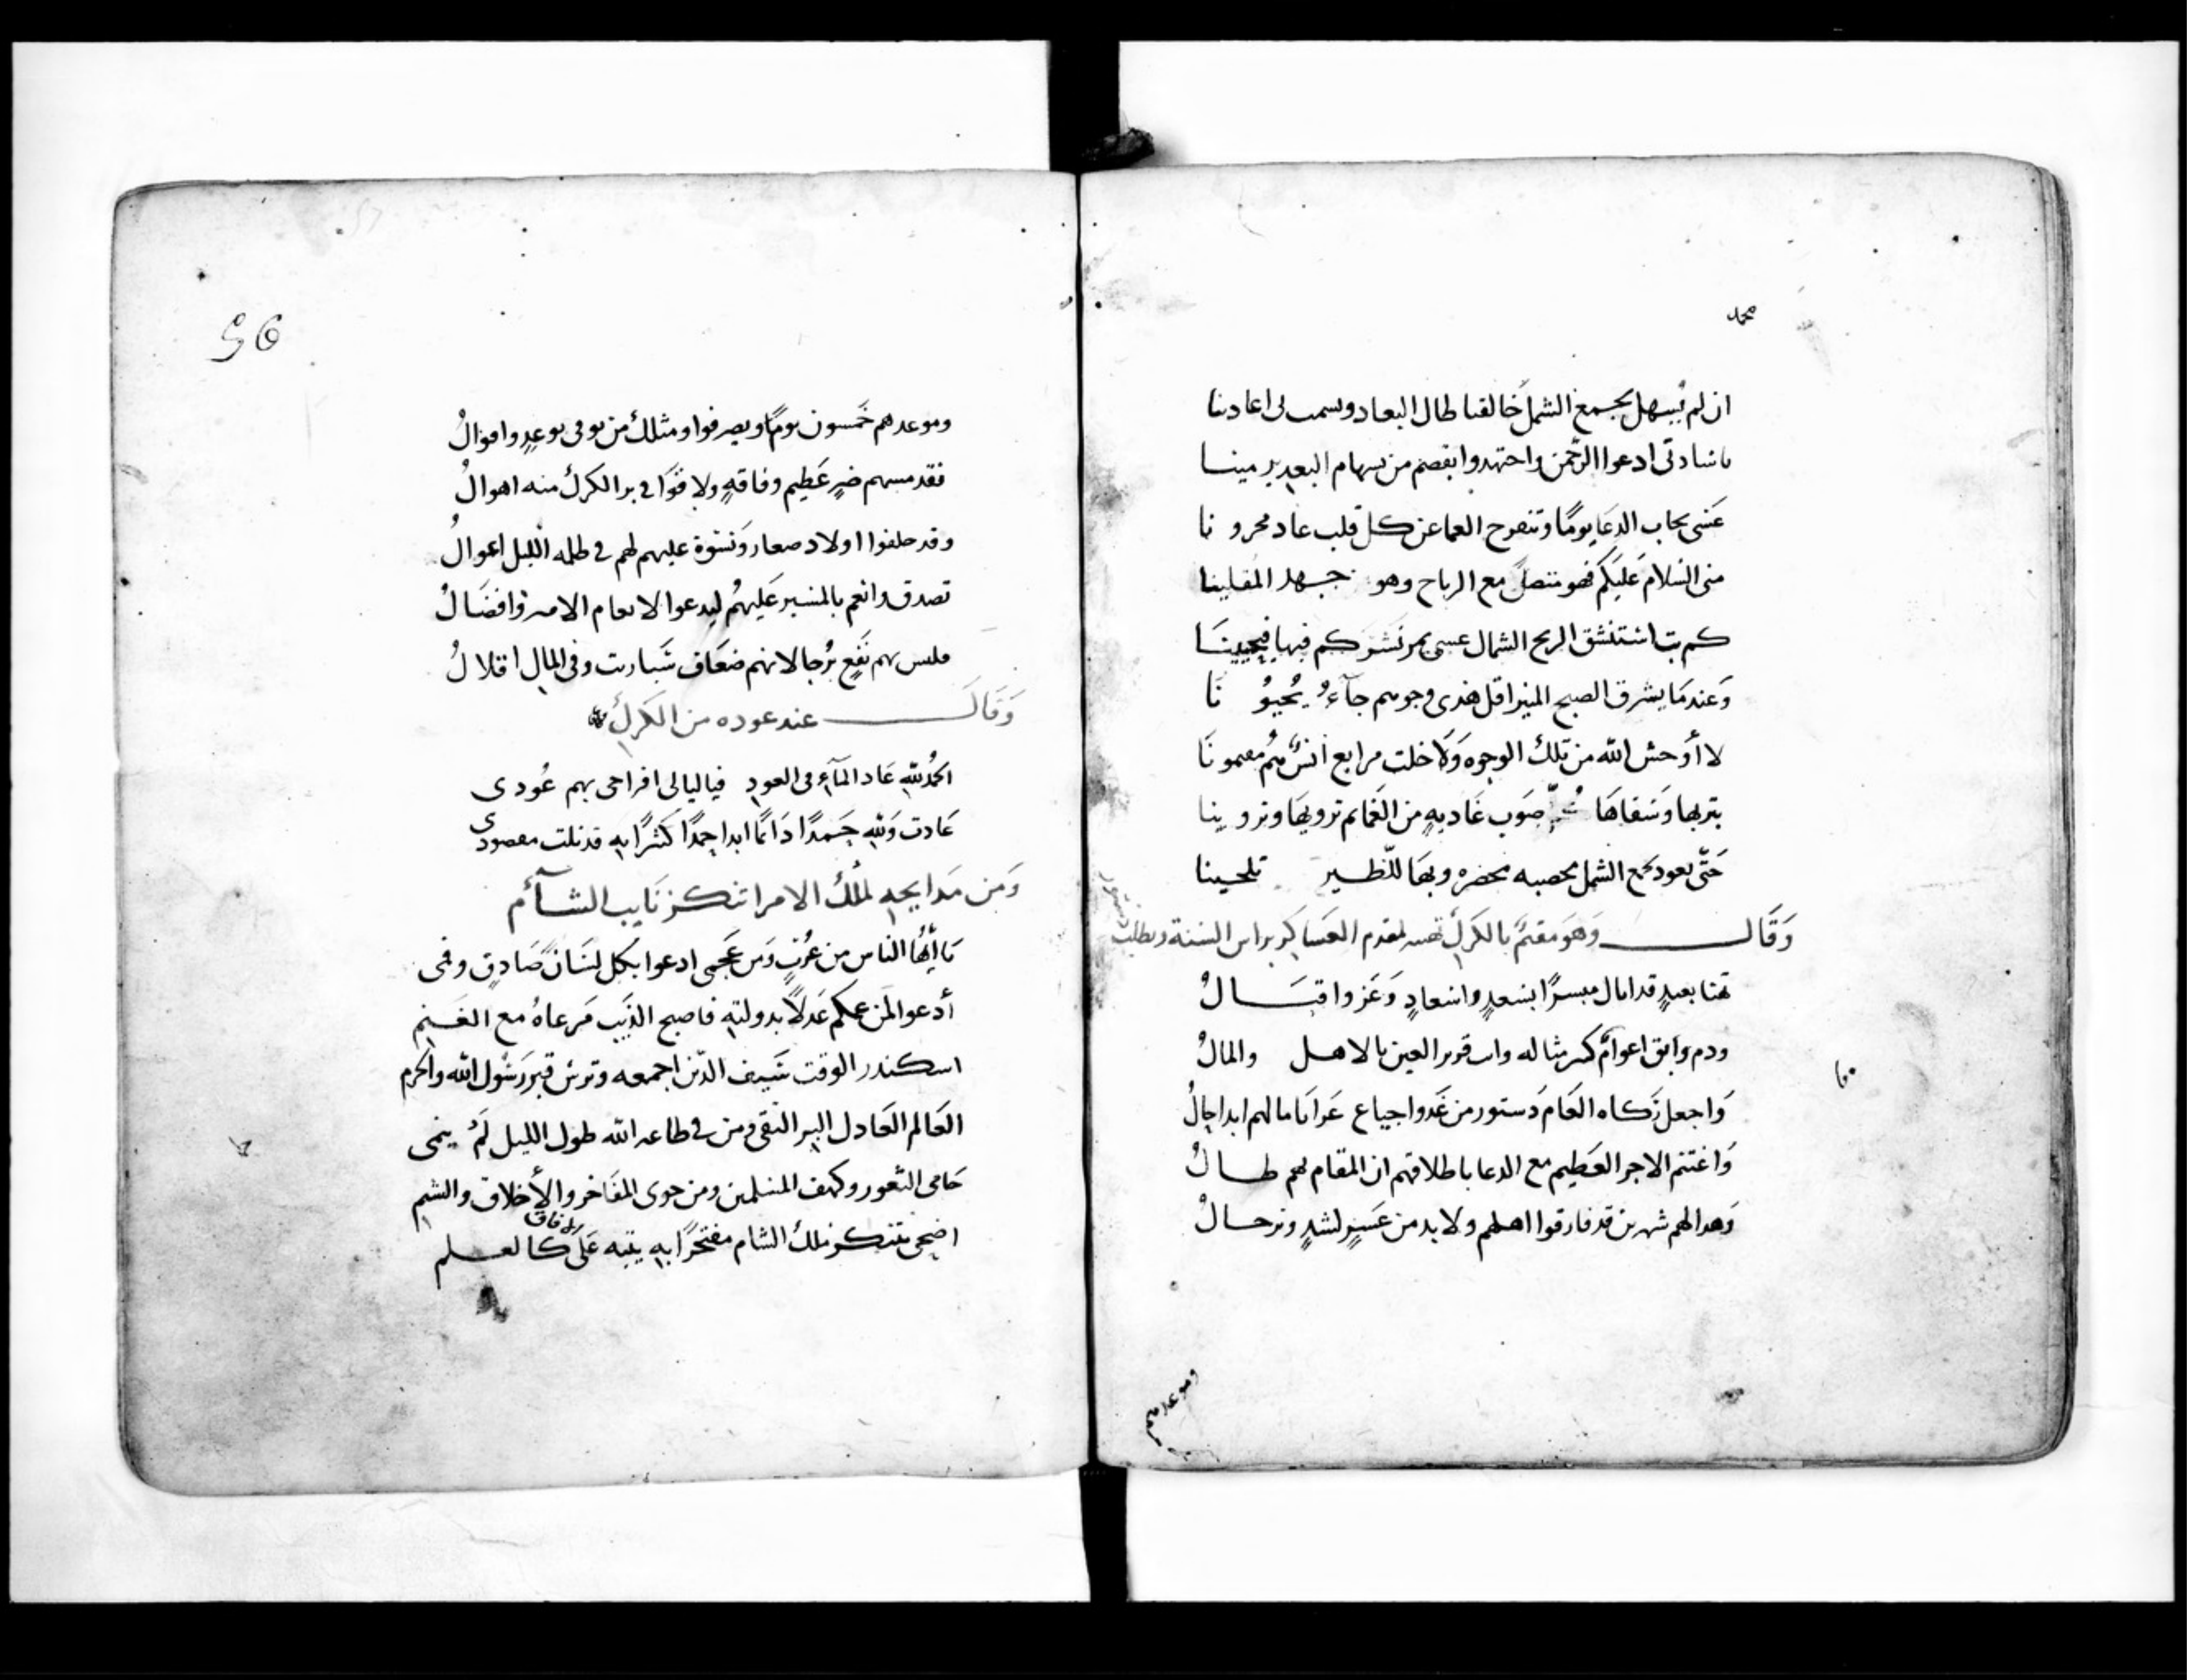 محمد
ان لم يسهل بجمع الشمل خالقنا طال البعاد وسمت لى اعادينا
يا سادتى ادعوا الرحمن واجتهدوا بقصم من بسهام البعد يرمينا
عَسَى يجاب الدعَا يومًا وتنفرج الغما عن كل قلب عاد محزونا
منى السلام عليكم فهو متصل مع الرياح وهو جهد المقلينا
كم بت استنشق الريح الشمال عسى يمر نشركم فيها فيحيينَا
وَعندمَا يشرق الصبح المنير اقل هذى وجوههم جآءُ يُحيونَا
لا أوحش الله من تلك الوجوه وَلا خلت مرابع انس هم مقيمونَا
بتربها وَسقاهَا صَوب غَاديهٍ من الغمَائم ترويهَا وتروينا
حَتّى يعود بجمع الشمل مخصبه مخضره وبهَا للّطير تلحينا
وَقَالـــــ وَهوَ مقيمٌ بالكرك تهنيه لمقدم العسَاكر براس السنة ويطلب دستور
تهنا بعيدٍ قد اتاك مبسرًا بسعدٍ واسعادٍ وَعَز واقبَالُ
ودم وابق اعوامٌ كثير مثاله وانت قرير العين بالاهل والمالُ
وَاجعل زكاه العَام دَستور من غَدوا جياع عَرايَا مالهم ابدا جالُ
وَاغتنم الاجر العَظيم مع الدعا باطلاقهم ان المقام بهم طالُ
وَهدا لهم شهرين قد فارقوا اهلهم ولا بد من عَسيرٍ لشدٍ وترحالُ
٦٠
وموعدهم
95
وموعدهم خَمسون يومًا ويصرفوا ومثلك من يوفى بوعدٍ واقوالُ
فقد مسهم ضرٍ عَظيم وفاقهٍ ولاقوَا فى بر الكرك منه اهوالُ
وقد خلفوا اولاد صغار وَنسوة عليهم لهم فى ظلمه الليل اعوالُ
تصدق وانعم بالمسير عَليهُم ليدعوا لانعام الامير وافضَالُ
فليس بهم نَفعٍ يُرجا لانهم ضعَاف شبارت وفى المال اقلالُ
وَقَالَـــــ عند عوده من الكرك
الحمُدللهِ عَاد المآءٍ فى العودِ فيا ليالى افراحى بهم عُودى
عَادت وَللهِ حَمدًا دَائمًا ابدا حمدًا كثيرًا بهِ قد نلت مقصودى
وَمن مَدايحهِ لملك الامرا تنكز نَايب الشآم
يَا أيُّهَا النَاس من عُربٍ وَمن عَجمى ادعوا بكل لسَان صَادقٍ وفمى
أدعوا لمَن عمكم عَدلًا بدولتهِ فاصبح الذيَب مَرعاهُ مع الغَنمِ
اسكندر الوقت سَيف الدّين اجمعه وترس قبر رَسُول الله والحرم
العَالم العَادل البر التقى ومن فى طاعه الله طول الليل لَم ينمى
حَامى الثغور وكهف المسلمين ومن حوى المفَاخر والأخلاق والشيمِ
اضحى بتنكز ملك الشام مفتخرًا بهِ يتيه عَلى الافاق كالعلم